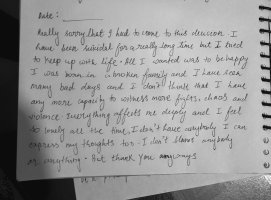 Date : ______
Really sorry that I had to come to this decision. I
have been suicidal for a really long time but I tried
to keep up with life. All I wanted was to be happy
I was born in a broken family and I have seen
many bad days and I don't think that I have
any more capacity to witness more fights, chaos and
violence. Everything affects me deeply and I feel
so lonely all the time, I don't have anybody I can
express my thoughts to. I don't blame anybody
or anything. But thank you anyways